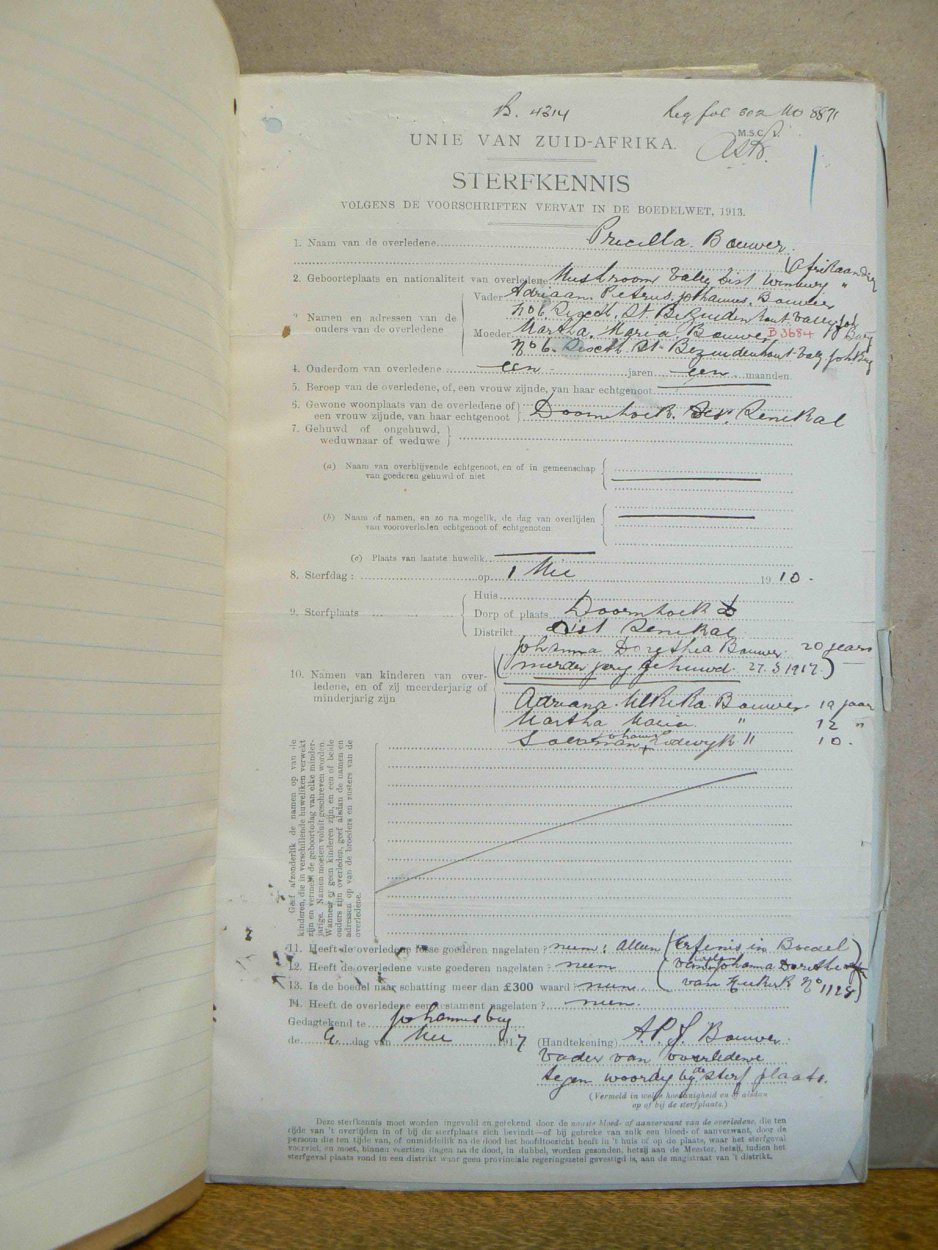 B. 4314 Reg fol 302 No 8871
M.S.C. 5.
UNIE VAN ZUID-AFRIKA.
STERFKENNIS
VOLGENS DE VOORSCHRIFTEN VERVAT IN DE BOEDELWET, 1913.
1. Naam van de overledene Precilla. Bouwer.
2. Geboorteplaats en nationaliteit van overledene Mushroom Valey Dist Winburg
3. Namen en adressen van de ouders van de overledene
Vader Adriaan. Pietrus. Johannes. Bouwer
No 6. St. Bezuidenhout Valey
Moeder Martha. Maria Bouwer B3684
No 6. St. Bezuidenhout Valy
4. Ouderdom van overledene een jaren een maanden
5. Beroep van de overledene, of, een vrouw zijnde, van haar echtgenoot
6. Gewone woonplaats van de overledene of een vrouw zijnde, van haar echtgenoot Doornhoek. Senekal
7. Gehuwd of ongehuwd, weduwnaar of weduwe
(a) Naam van overblijvende echtgenoot, en of in gemeenschap van goederen gehuwd of niet
(b) Naam of namen, en zo na mogelik, de dag van overlijden van vooroverleden echtgenoot of echtgenoten
(c) Plaats van laatste huwelik
8. Sterfdag: op 1 Mei 1910.
9. Sterfplaats
Huis
Dorp of plaats Doornhoek
Distrikt Dist Senekal
Johanna Dorothea Bouwer. 20 years
(meerder jarig gehuwd. 27.3.1917.)
10. Namen van kinderen van overledene, en of zij meerderjarig of minderjarig zijn
Adriana Bouwer. 19 jaar
Martha Maria " 12 "
Lodewyk " 10.
Geef afzonderlik de namen op van de kinderen, die in verschillende huweliken verwekt zijn en vermeld de geboortedag van elke minderjarige. Namen moeten voluit geschreven worden. Wanneer er geen kinderen zijn, en een of beide ouders zijn overleden, geef alsdan de namen en adressen op van de broeders en zusters van de overledene.
11. Heeft de overledene losse goederen nagelaten? neen: Alleen (Erfenis in Boedel
12. Heeft de overledene vaste goederen nagelaten? neen van Johanna Dorothea
13. Is de boedel naar schatting meer dan £300 waard? neen. van No 1128)
14. Heeft de overledene een testament nagelaten? neen.
Gedagtekend te Johannesburg
de 9 dag van Mei 1917 (Handtekening) A.P.J. Bouwer.
Vader van overledene
tegen woordig by de sterf plaats.
(Vermeld in welke hoedanigheid en of alsdan op of bij de sterfplaats.)
Deze sterfkennis moet worden ingevuld en getekend door de naaste bloed- of aanverwant van de overledene, die ten
tijde van 't overlijden in of bij de sterfplaats zich bevindt—of bij gebreke van zulk een bloed- of aanverwant, door de
persoon die ten tijde van, of onmiddellik na de dood het hoofdtoezicht heeft in 't huis of op de plaats, waar het sterfgeval
voorviel, en moet, binnen veertien dagen na de dood, in dubbel, worden gezonden, hetzij aan de Meester, hetzij, indien het
sterfgeval plaats vond in een distrikt waar geen provinciale regeringszetel gevestigd is, aan de magistraat van 't distrikt.